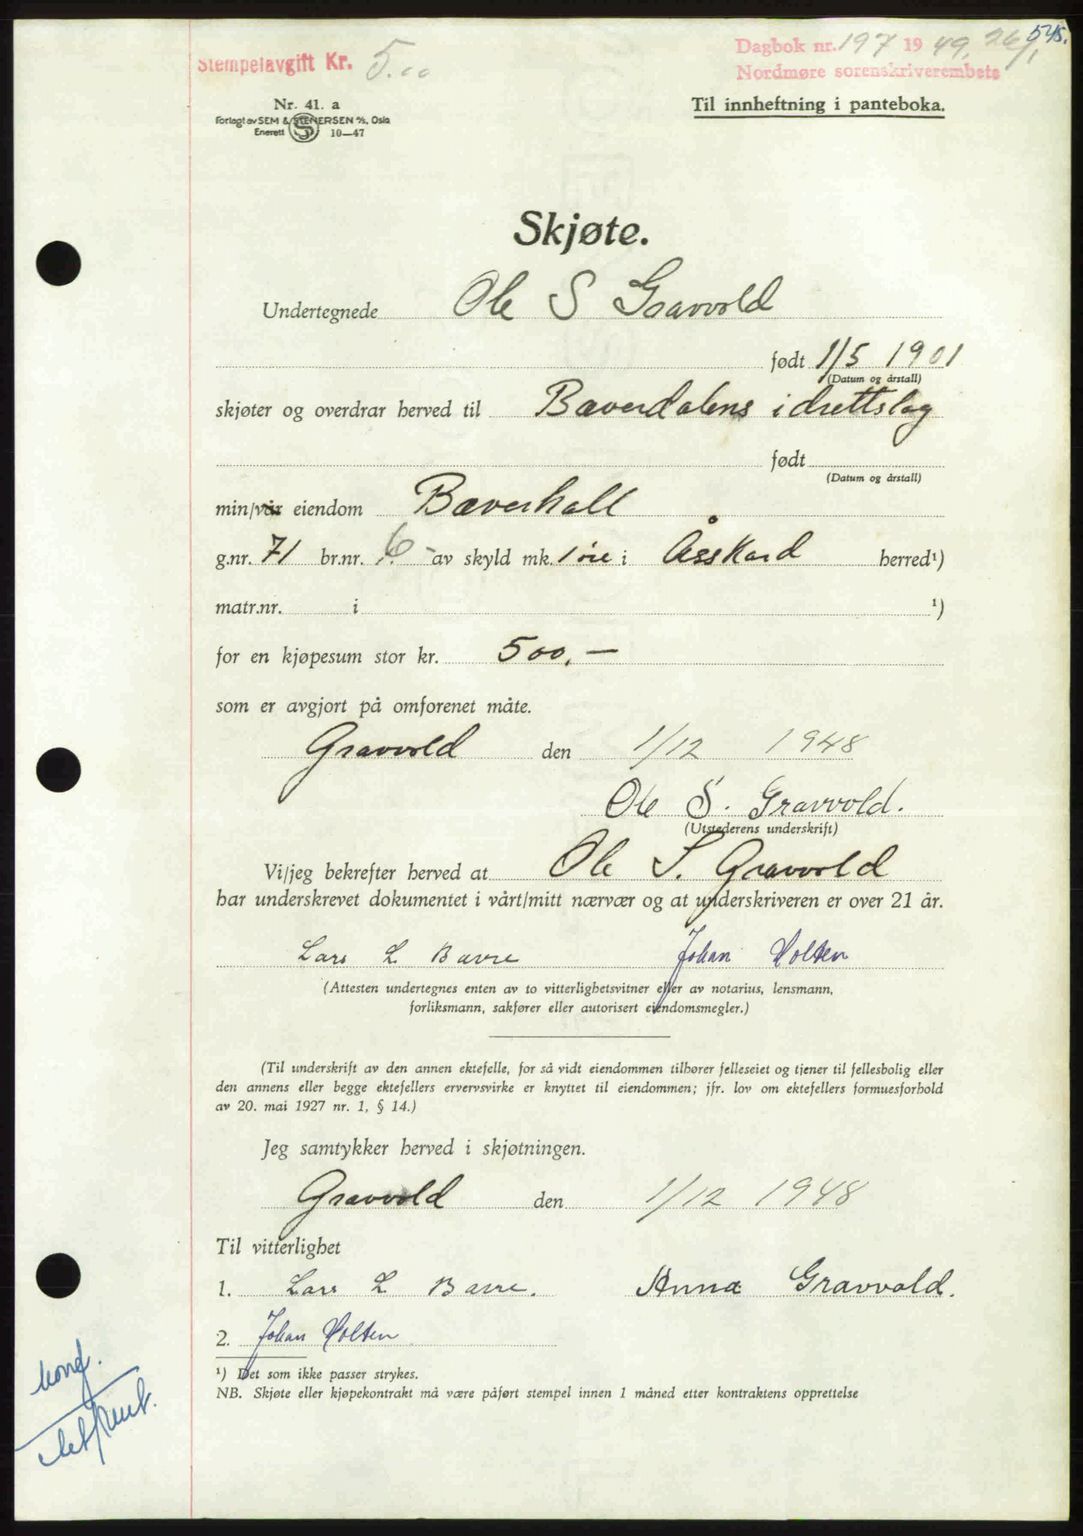 545.
Stempelavgift Kr. 5.00
Dagbok nr. 197 1949. 26/1
Nordmøre sorenskriverembete
Nr. 41. a
Til innheftning i panteboka.
Forlagt av SEM & STENERSEN A/S, Oslo
Enerett S 10—47
Skjøte.
Undertegnede Ole S Gravvold
født 1/5 1901
(Datum og årstall)
skjøter og overdrar herved til Bæverdalens idrettslag
født
(Datum og årstall)
min/vår eiendom Bæverhall
g.nr. 71 br.nr. 6 av skyld mk. 1 øre i Åsskard herred¹)
matr.nr. i ¹)
for en kjøpesum stor kr. 500,—
som er avgjort på omforenet måte.
Gravvold den 1/12 1948
Ole S. Gravvold.
(Utstederens underskrift)
Vi/jeg bekrefter herved at Ole S. Gravvold
har underskrevet dokumentet i vårt/mitt nærvær og at underskriveren er over 21 år.
Lars L Bævre Johan Holten
(Attesten undertegnes enten av to vitterlighetsvitner eller av notarius, lensmann,
forliksmann, sakfører eller autorisert eiendomsmegler.)
(Til underskrift av den annen ektefelle, for så vidt eiendommen tilhører felleseiet og tjener til fellesbolig eller
den annens eller begge ektefellers ervervsvirke er knyttet til eiendommen; jfr. lov om ektefellers formuesforhold
av 20. mai 1927 nr. 1, § 14.)
Jeg samtykker herved i skjøtningen.
Gravvold den 1/12 1948
Til vitterlighet
1. Lars L Bævre. Anna Gravvold.
2. Johan Holten
¹) Det som ikke passer strykes.
NB. Skjøte eller kjøpekontrakt må være påført stempel innen 1 måned etter kontraktens opprettelse